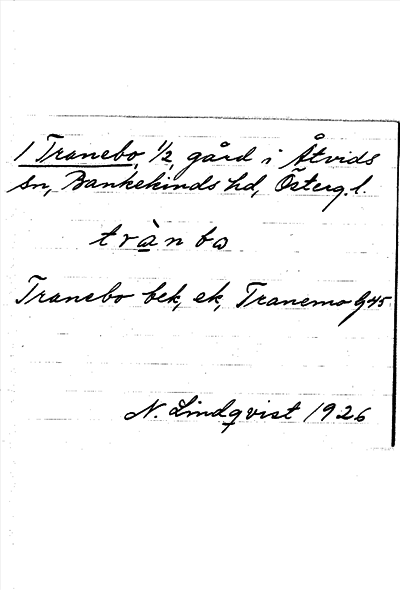 1 Tranebo, 1/2, gård i Åtvids
sn, Bankekinds hd, Österg. l.
trànbω
Tranebo bek, ek, Tranemo G45
N. Lindqvist 1926